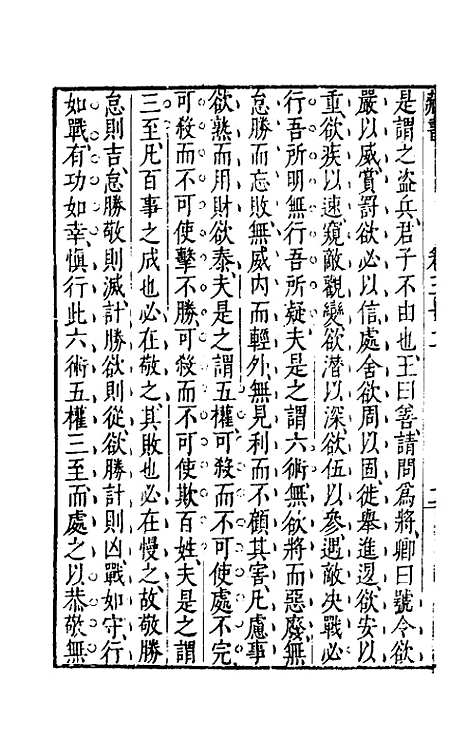 是謂之盜兵君子不由也王曰善請問爲將卿曰號令欲
嚴以威賞罰欲必以信處舍欲周以固徙舉進退欲安以
重欲疾以速窺敵觀變欲潛以深欲伍以參遇敵決戰必
行吾所明無行吾所疑夫是之謂六術無欲將而惡廢無
怠勝而忘敗無威內而輕外無見利而不顧其害凡慮事
欲熟而用財欲泰夫是之謂五權可殺而不可使處不完
可殺而不可使擊不勝可殺而不可使欺百姓夫是之謂
三至凡百事之成也必在敬之其敗也必在慢之故敬勝
怠則吉怠勝敬則滅計勝欲則從欲勝計則凶戰如守行
如戰有功如幸慎行此六術五權三至而處之以恭敬無